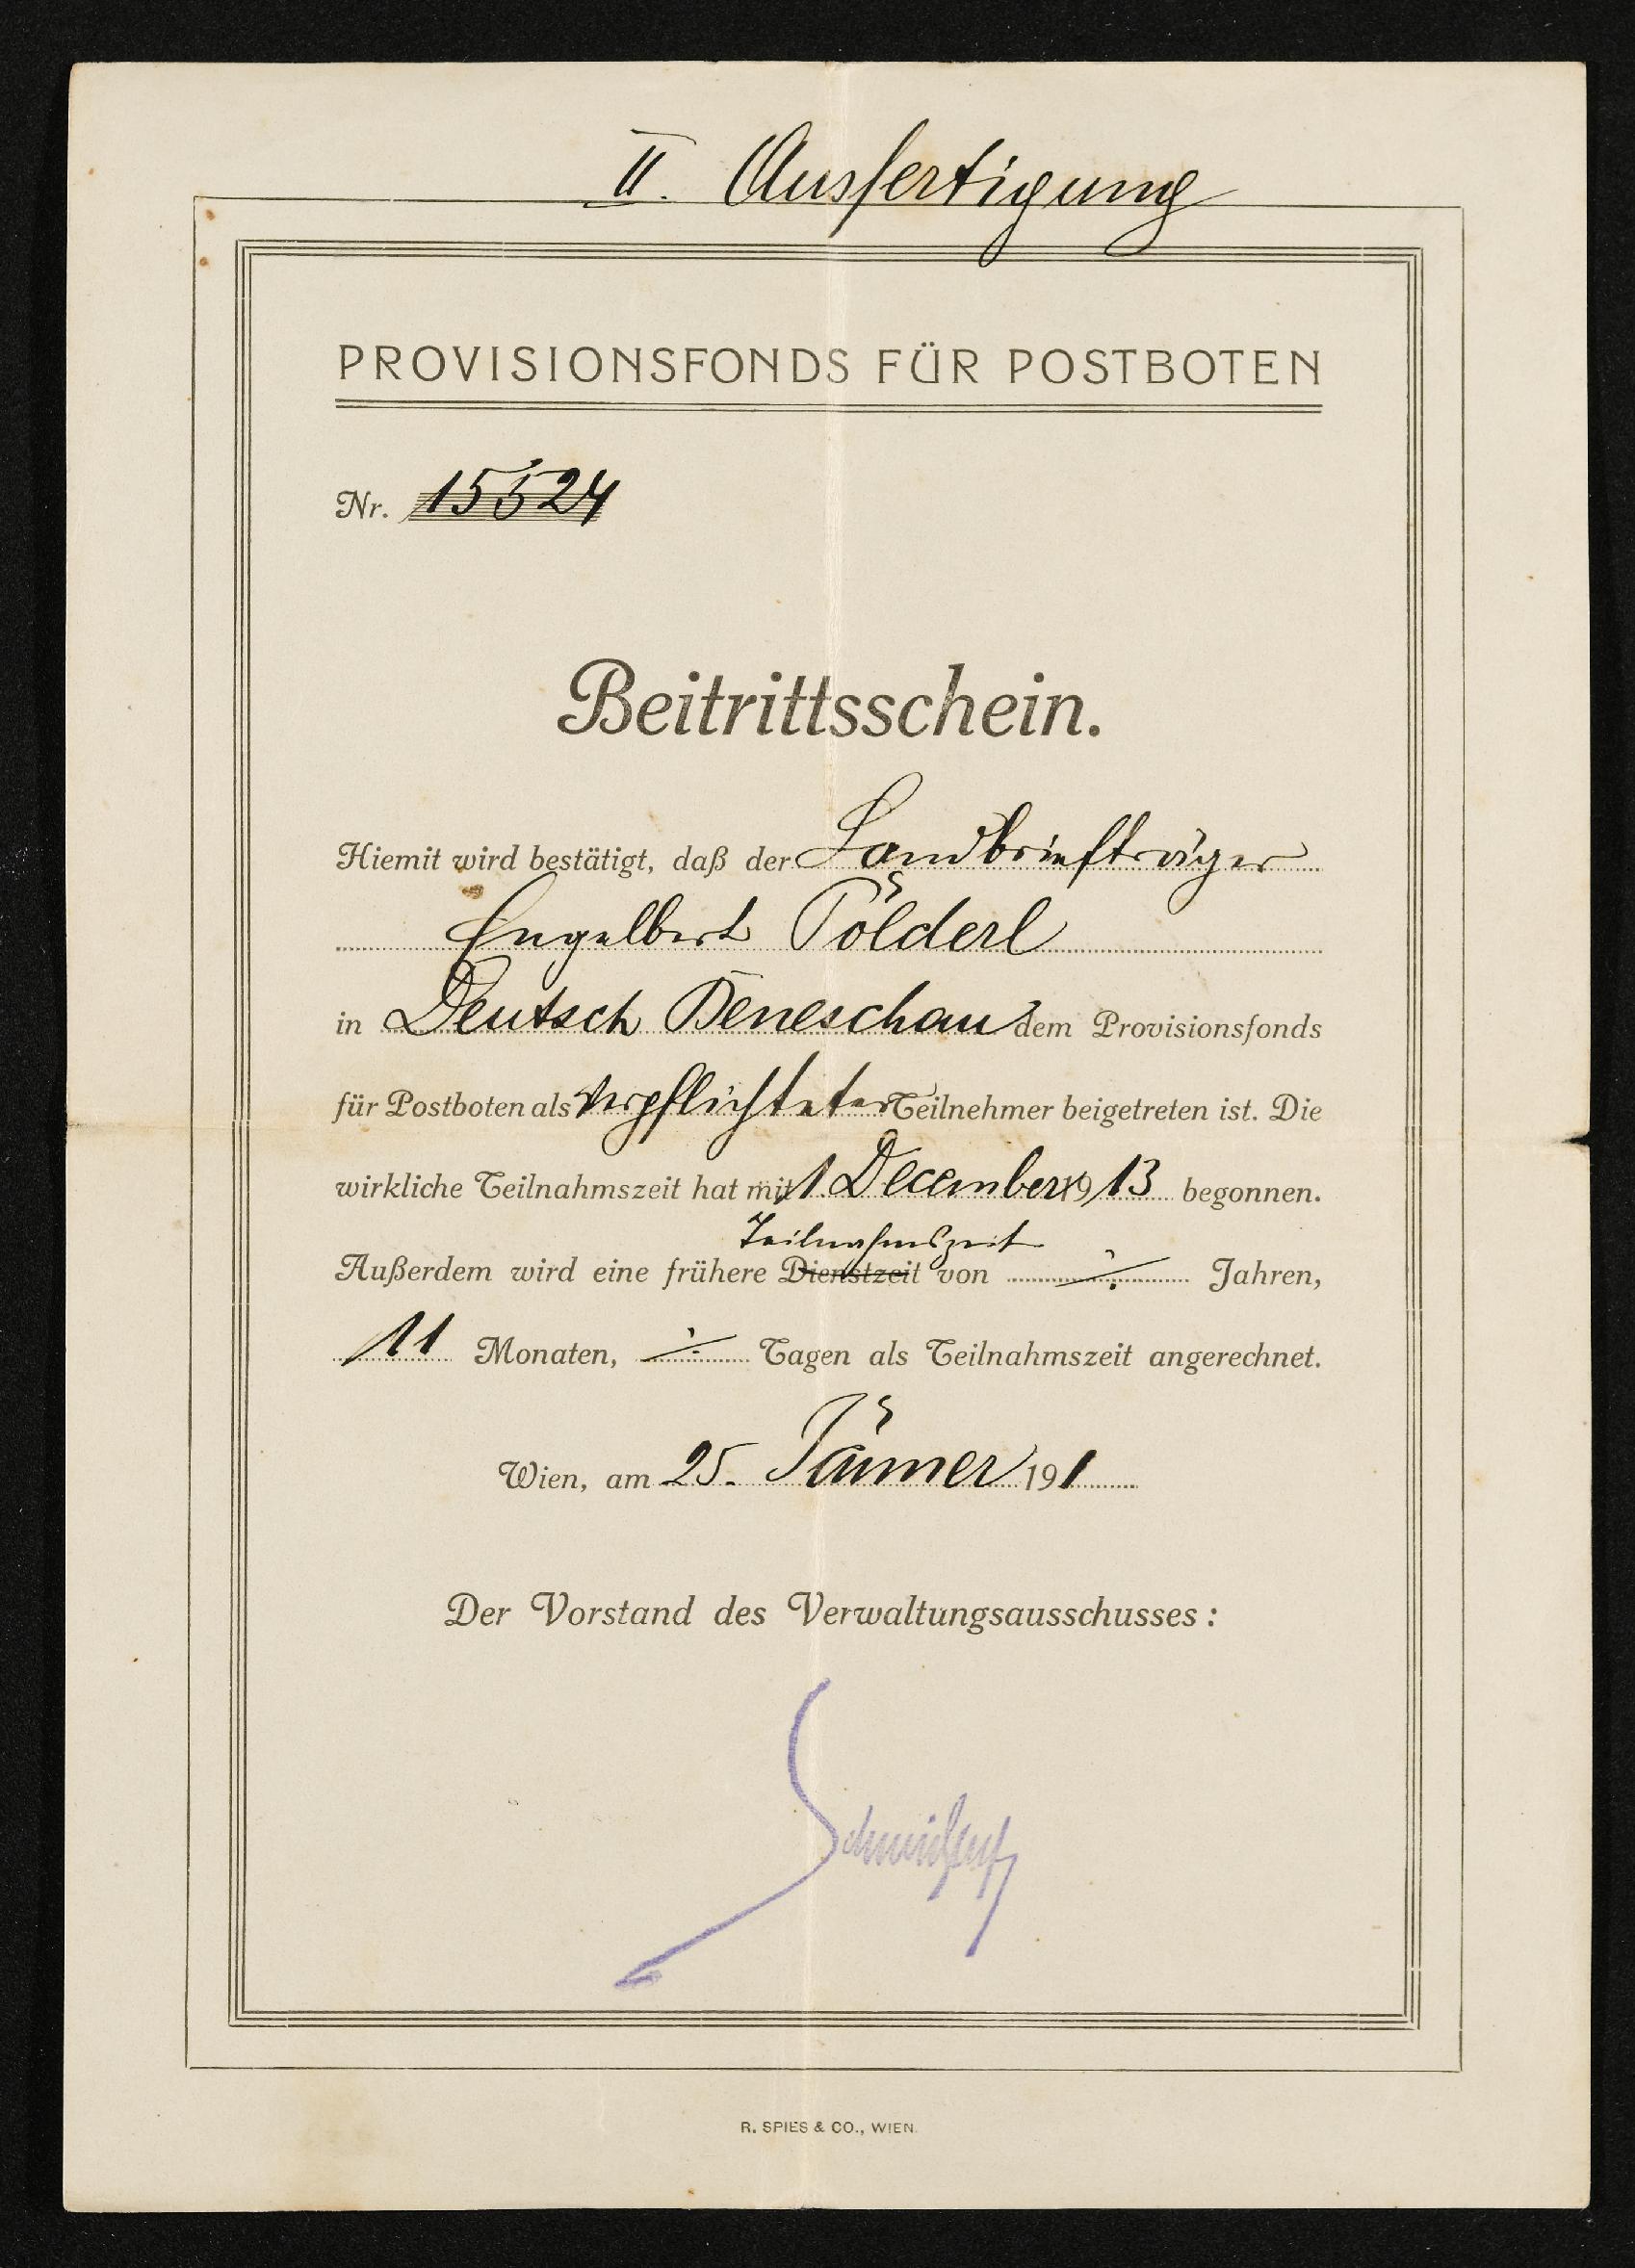 II. Ausfertigung
PROVISIONSFONDS FÜR POSTBOTEN
Nr. 15524
Beitrittsschein.
Hiemit wird bestätigt, daß der Landbriefträger
Engelbert Pölderl
in Deutsch Beneschau dem Provisionsfonds
für Postboten als verpflichteter Teilnehmer beigetreten ist. Die
wirkliche Teilnahmszeit hat mit 1. December 1913 begonnen.
Teilnahmszeit
Außerdem wird eine frühere Dienstzeit von ./. Jahren,
11 Monaten, ./. Tagen als Teilnahmszeit angerechnet.
Wien, am 25. Jänner 191
Der Vorstand des Verwaltungsausschusses:
R. SPIES & CO., WIEN.